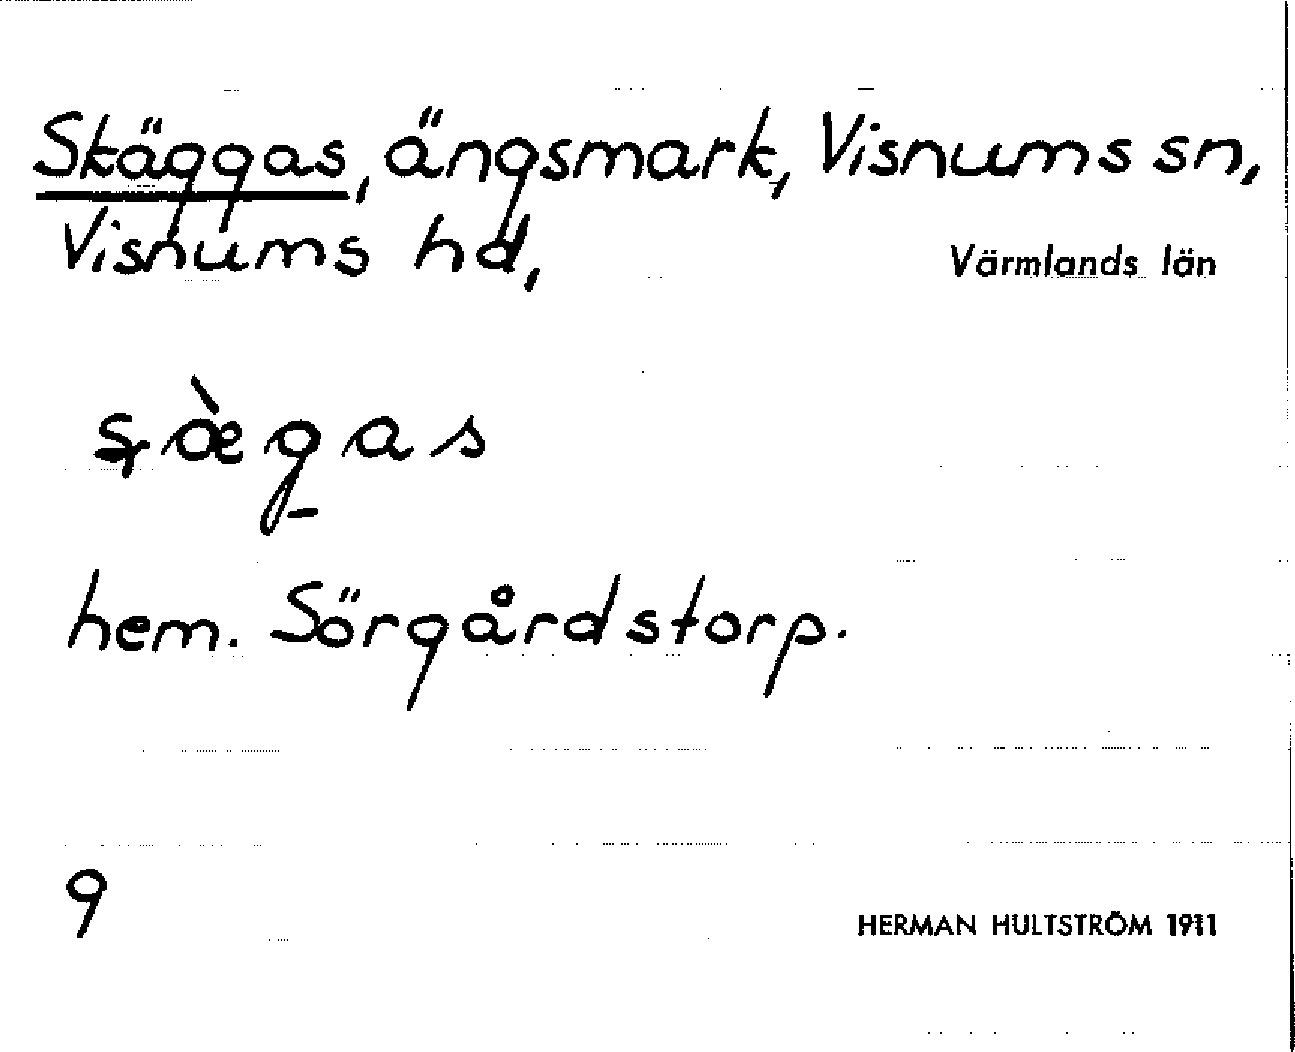 Skäggas, ängsmark, Visnums sn,
Visnums hd,
Värmlands län
hem. Sörgårdstorp.
9
HERMAN HULTSTRÖM 1911